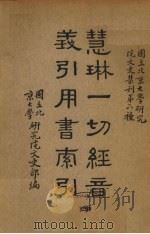 國立北京大學研究
院文史叢刊第六種
慧琳一切經音
義引用書索引
國立北
京大學
研究院文史部編